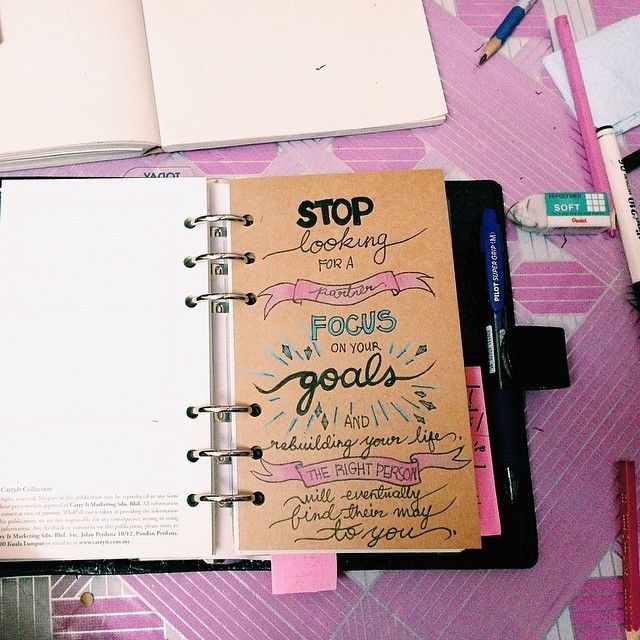 TODAY
STOP
looking
FOR A
partner
FOCUS
ON YOUR
goals
AND
rebuilding your life.
THE RIGHT PERSON
will eventually
find their way
to you.
CarryIt Collection
rights reserved. No part of this publication may be reproduced in any form
written approval of Carry It Marketing Sdn. Bhd. All information
correct at time of
publication, we are not responsible for any consequence arising in using
information. Any feedback or comment on this publication, please write to
Carry It Marketing Sdn. Bhd. 34c, Jalan Perdana 10/12, Pandan Perdana,
Kuala Lumpur or email us at www.carryit.com.my
PILOT SUPER GRIP (M)
HI-POLYMER
SOFT
Pentel